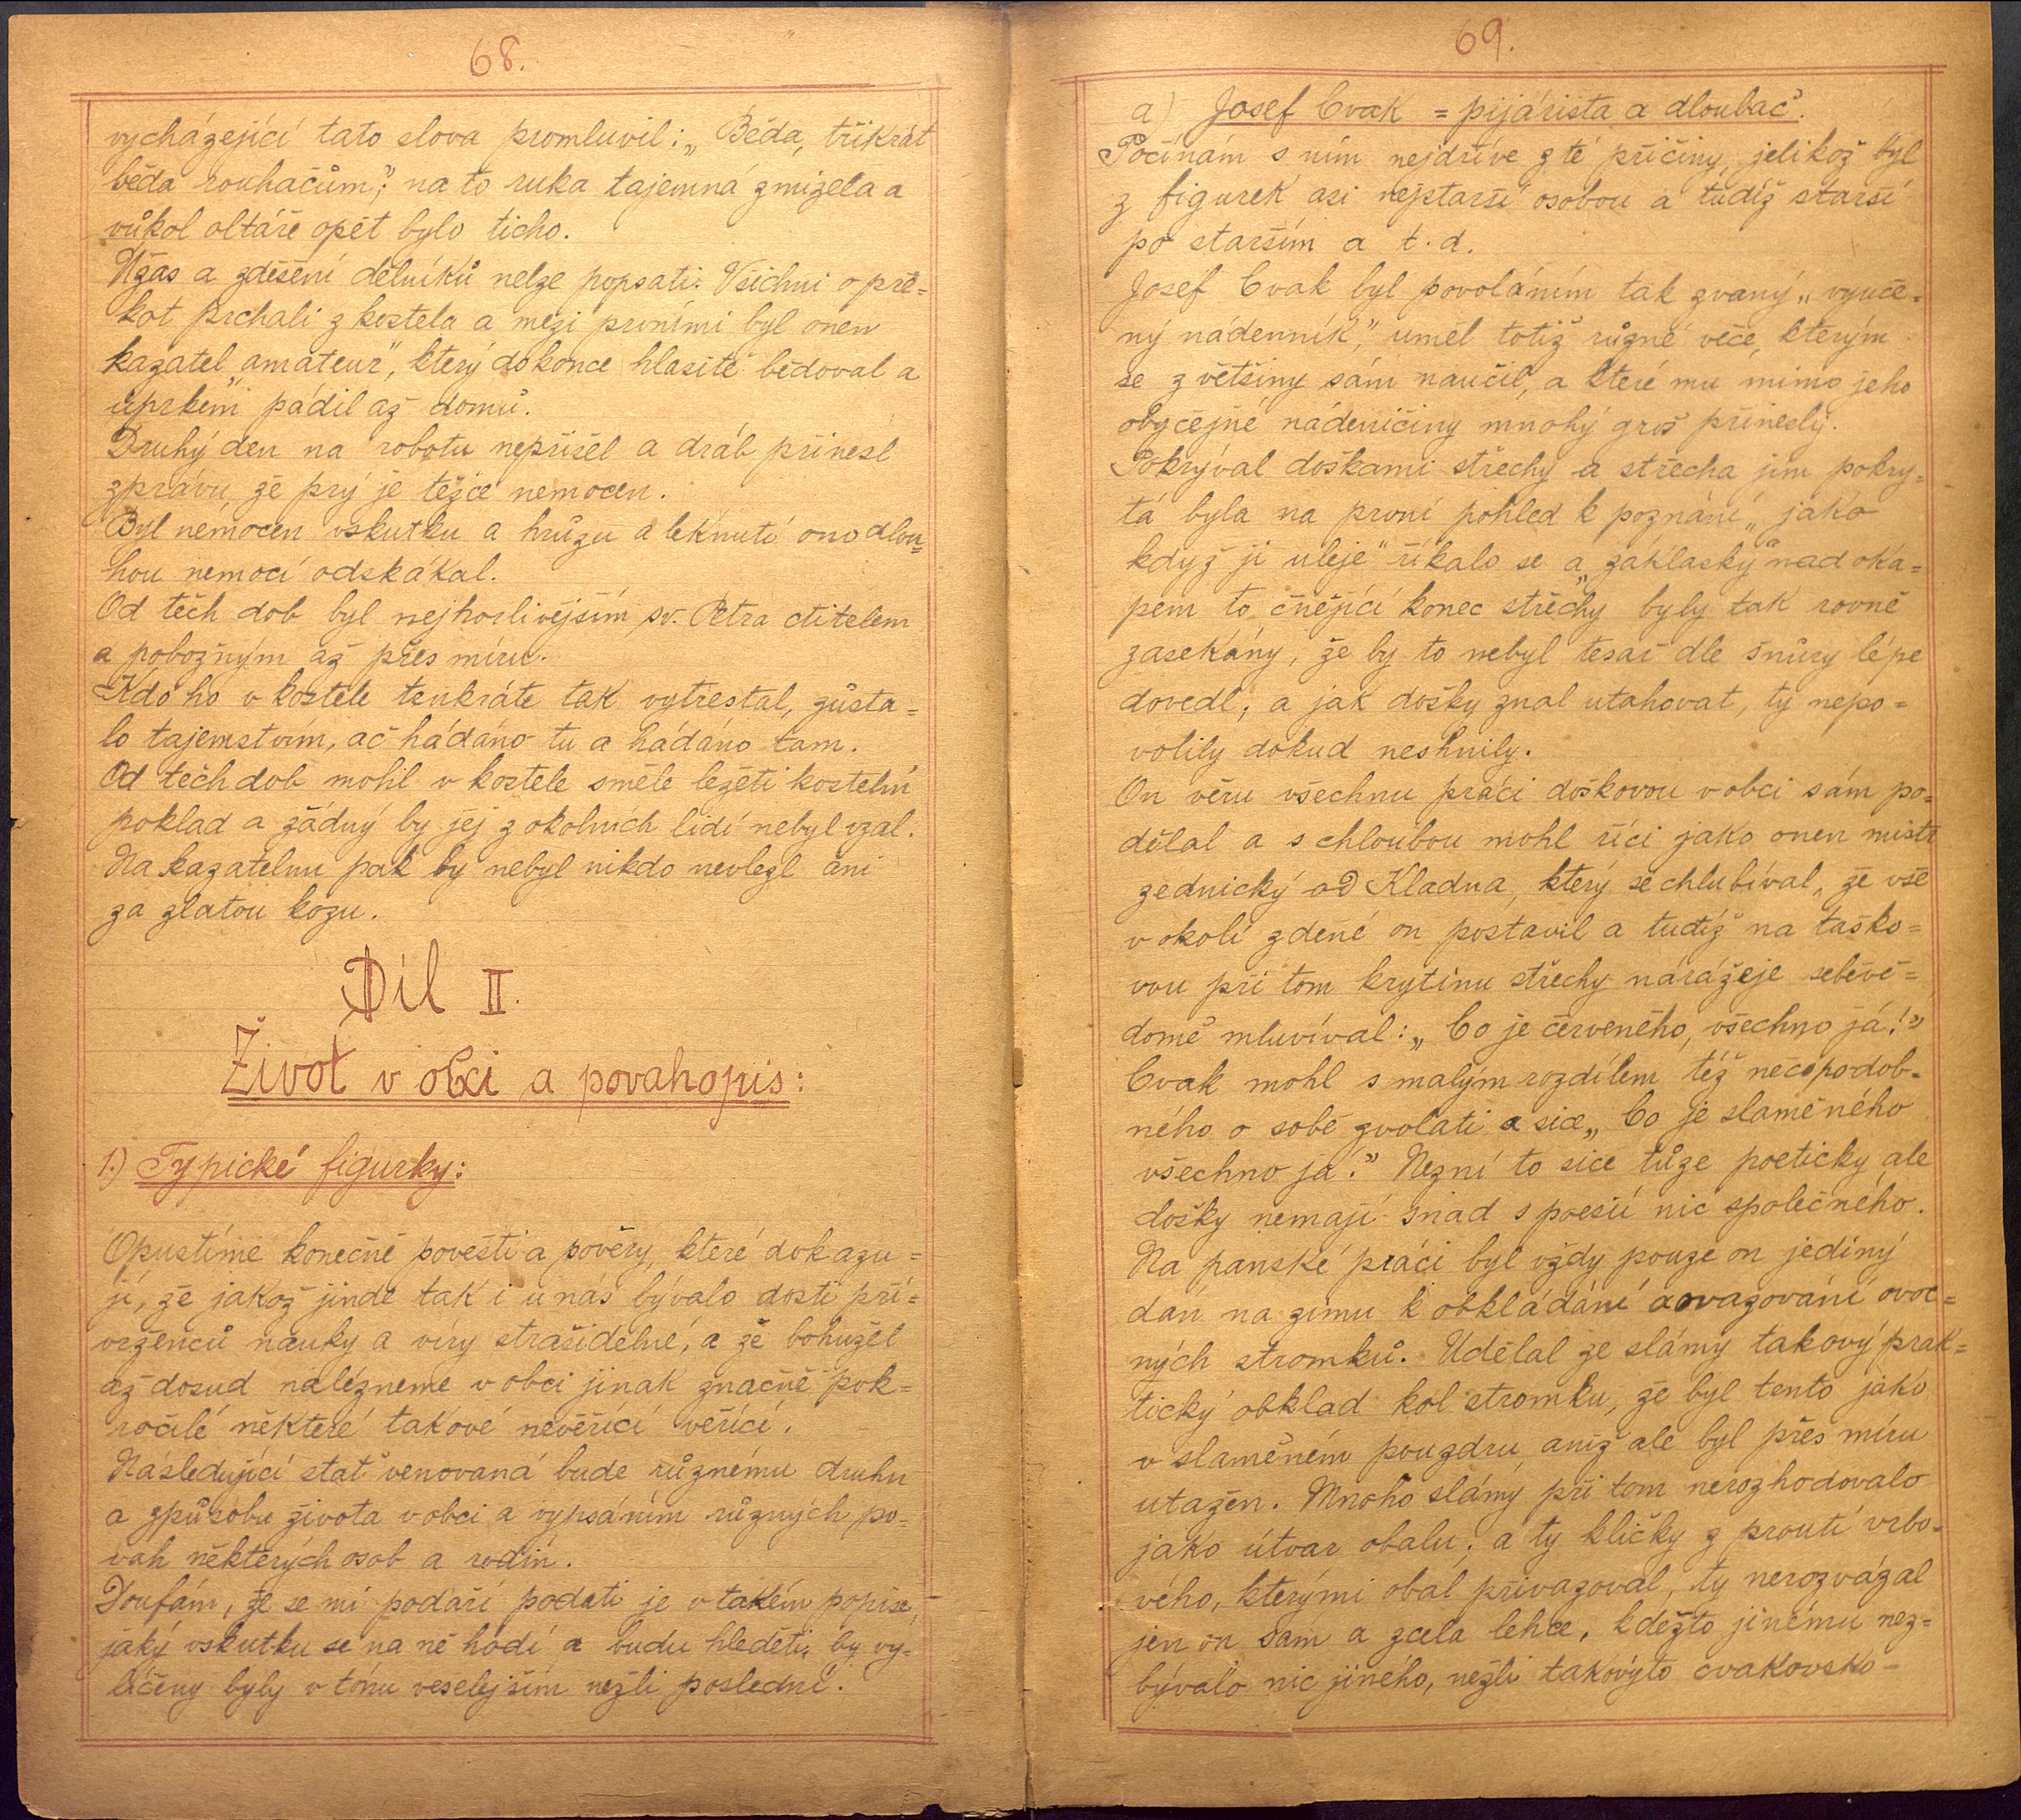 68.
vycházející tato slova promluvil: „Běda, třikrát
běda rouhačům”; na to ruka tajemná zmizela a
vůkol oltáře opět bylo ticho.
Užas a zděšení dělníků nelze popsati. Všichni o pře=
kot prchali z kostela a mezi prvními byl onen
kazatel „amateur”, který dokonce hlasitě bědoval a
úprkem pádil až domů.
Druhý den na robotu nepřišel a dráb přinesl
zprávu, že prý je těžce nemocen.
Byl nemocen vskutku a hrůzu a leknutí ono dlou=
hou nemocí odskákal.
Od těch dob byl nejhorlivějším sv. Petra ctitelem
a pobožným až přes míru.
Kdo ho v kostele tenkráte tak vytrestal, zůsta=
lo tajemstvím, ač hádáno tu a hádáno tam.
Od těch dob mohl v kostele směle ležeti kostelní
poklad a žádný by jej z okolních lidí nebyl vzal.
Na kazatelnu pak by nebyl nikdo nevlezl ani
za zlatou kozu.
Díl II.
Život v obci a povahopis:
1.) Typické figurky:
Opustíme konečně pověsti a pověry, které dokazu=
jí, že jakož jinde tak i u nás bývalo dosti pří=
vrženců nauky a víry strašidelné, a že bohužel
až dosud nalézneme v obci jinak značně pok=
ročilé některé takové nevěřící věřící.
Následující stať venovaná bude různému druhu
a způsobu života v obci a vypsáním různých po=
vah některých osob a rodin.
Doufám, že se mi podaří podati je v takém popise,
jaký vskutku se na ně hodí a budu hleděti, by vy=
líčeny byly v tónu veselejším nežli poslední.
69.
a) Josef Cvak = pijárista a dloubač.
Počínám s ním nejdříve z té příčiny, jelikož byl
z figurek asi nejstarší osobou a tudíž starší
po starším a t. d.
Josef Cvak byl povoláním tak zvaný „vyuče=
ný nádenník”, uměl totiž různé věce, kterým
se z většiny sám naučil, a které mu mimo jeho
obyčejné nádeničiny mnohý groš přinesly.
Pokrýval doškami střechy a střecha jím pokry=
tá byla na první pohled k poznání „jako
když ji uleje” říkalo se a „záklasky” nad oka=
pem to čnějící konec střechy byly tak rovně
zasekány, že by to nebyl tesař dle šnůry lépe
dovedl; a jak došky znal utahovat, ty nepo=
volily dokud neshnily.
On věru všechnu práci doškovou v obci sám po=
dělal a s chloubou mohl říci jako onen mistr
zednický od Kladna, který se chlubíval, že vše
v okolí zděné on postavil a tudíž na taško=
vou při tom krytinu střechy narážeje sebevě=
domě mluvíval: „Co je červeného, všechno já!”
Cvak mohl s malým rozdílem též něco podob=
ného o sobě zvolati a sice „Co je slaměného
všechno já.” Nezní to sice tůze poeticky ale
došky nemají snad s poesií nic společného.
Na panské práci byl vždy pouze on jediný
dán na zimu k obkládání a ovazování ovoc=
ných stromků. Udělal ze slámy takový prak=
tický obklad kol stromku, že byl tento jako
v slaměném pouzdru, aniž ale byl přes míru
utažen. Mnoho slámy při tom nerozhodovalo
jako útvar obalu; a ty kličky z proutí vrbo=
vého, kterými obal přivazoval, ty nerozvázal
jen on sám a zcela lehce, kdežto jinému nez=
bývalo nic jiného, nežli takovýto cvakovsko-